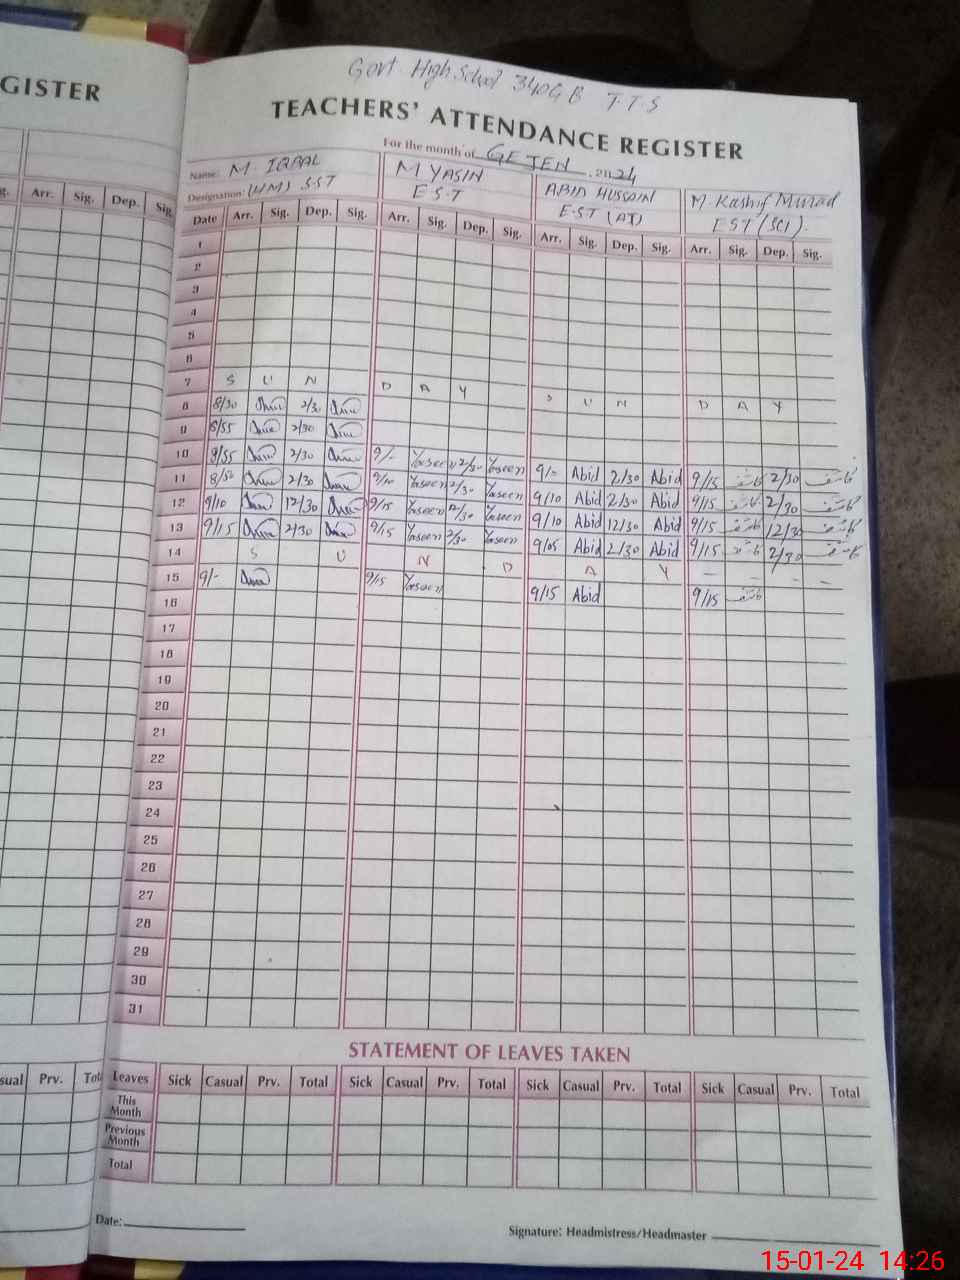 Govt. High School 340GB T.T.S
GISTER
TEACHERS' ATTENDANCE REGISTER
For the month of , 2024
Name: M. IQBAL M YASIN ABID HUSSAIN M. Kashif Murad
Designation: (HM) S.ST E.S.T E.ST (AT) EST (SCI).
Arr. Sig. Dep. Sig.
Date Arr. Sig. Dep. Sig. Arr. Sig. Dep. Sig. Arr. Sig. Dep. Sig. Arr. Sig. Dep. Sig.
1
2
3
4
5
6
7 S U N D A Y S U N D A Y
8 8/30 2/30
9 8/55 2/30
10 8/55 2/30 9/- Yaseen 2/30 Yaseen 9/- Abid 2/30 Abid 9/15 کاشف 2/30 کاشف
11 8/50 2/30 9/10 Yaseen 2/30 Yaseen 9/10 Abid 2/30 Abid 9/15 کاشف 2/30 کاشف
12 9/10 12/30 9/15 Yaseen 12/30 Yaseen 9/10 Abid 12/30 Abid 9/15 کاشف 12/30 کاشف
13 9/15 2/30 9/15 Yaseen 2/30 Yaseen 9/05 Abid 2/30 Abid 9/15 کاشف 2/30 کاشف
14 S U N D A Y – – – –
15 9/- 9/15 Yaseen 9/15 Abid 9/15 کاشف
16
17
18
19
20
21
22
23
24
25
26
27
28
29
30
31
STATEMENT OF LEAVES TAKEN
sual Prv. Tot
Leaves Sick Casual Prv. Total Sick Casual Prv. Total Sick Casual Prv. Total Sick Casual Prv. Total
This Month
Previous Month
Total
Date:
Signature: Headmistress/Headmaster
15-01-24 14:26